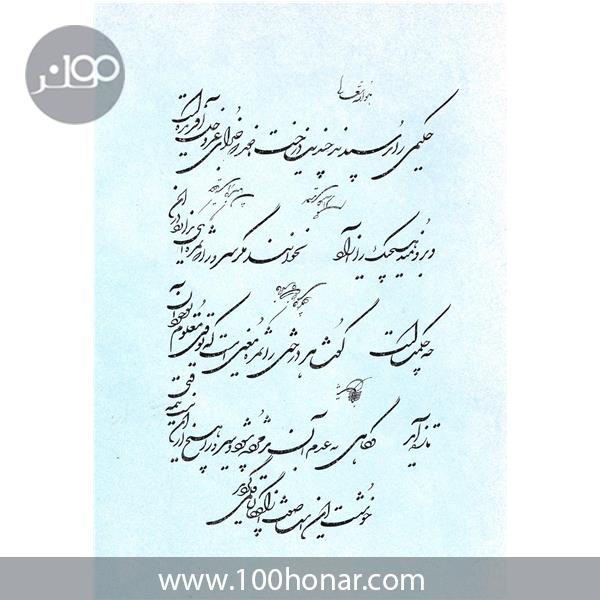 هو الله تعالی
حکیمی را پرسیدند چندین درخت نامور که خدای عز و جل آفریده است
و برومند هیچیک را آزاد نخوانند مگر سرو را که ثمره‌ای ندارد در این
چه حکمت است گفت هر درختی را ثمره معینی است که به وقتی معلوم به وجود آن
تازه آید و گاهی به عدم آن پژمرده شود و سرو را هیچ از این نیست همه وقتی
خوشست این است صفت آزادگان
موهنر
www.100honar.com